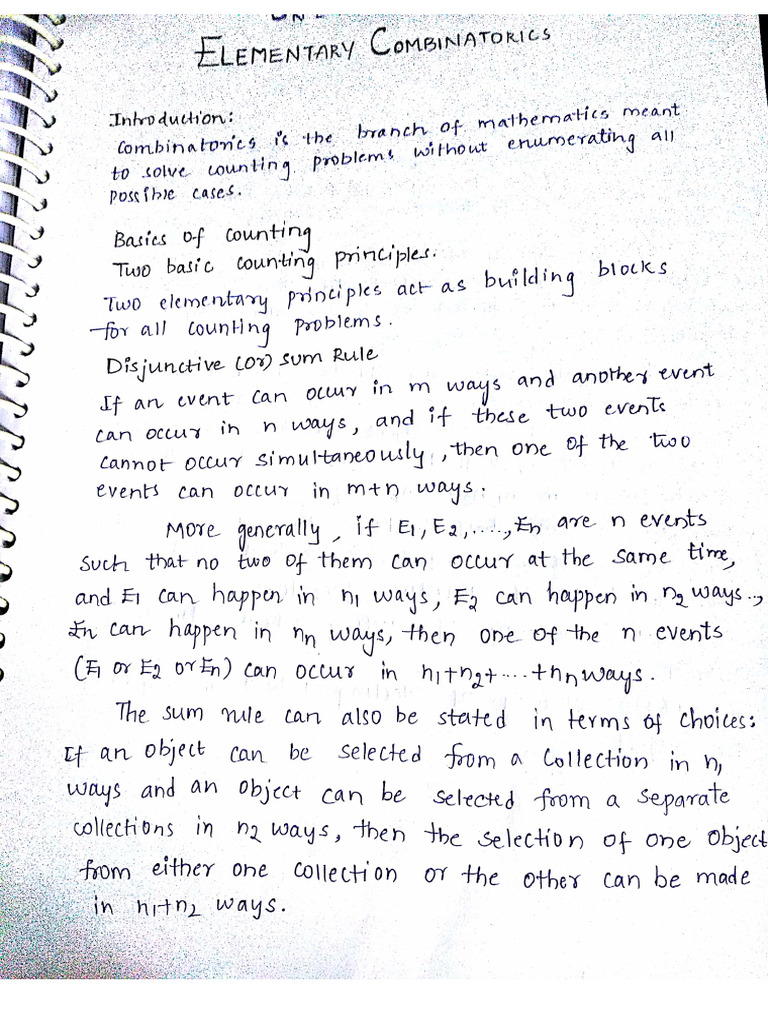 ELEMENTARY COMBINATORICS
Introduction:
Combinatorics is the branch of mathematics meant
to solve counting problems without enumerating all
possible cases.
Basics of counting
Two basic counting principles.
Two elementary principles act as building blocks
for all counting problems.
Disjunctive (or) sum Rule
If an event can occur in m ways and another event
can occur in n ways, and if these two events
cannot occur simultaneously, then one of the two
events can occur in m+n ways.
More generally, if E1, E2, ...., En are n events
such that no two of them can occur at the same time,
and E1 can happen in n1 ways, E2 can happen in n2 ways..,
En can happen in nn ways, then one of the n events
(E1 or E2 or En) can occur in n1+n2+....+nn ways.
The sum rule can also be stated in terms of choices:
If an object can be selected from a collection in n1
ways and an object can be selected from a separate
collections in n2 ways, then the selection of one object
from either one collection or the other can be made
in n1+n2 ways.